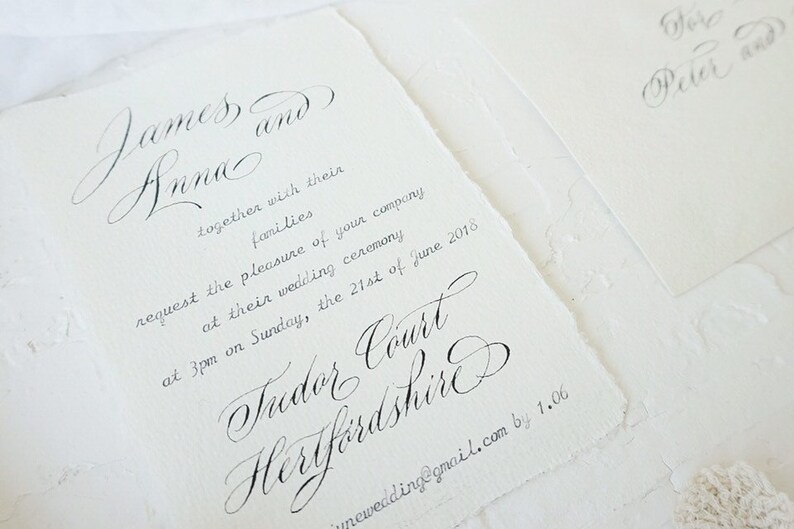 James and
Anna
together with their
families
request the pleasure of your company
at their wedding ceremony
at 3pm on Sunday, the 21st of June 2018
Tudor Court
Hertfordshire
by 1.06
For
Peter and